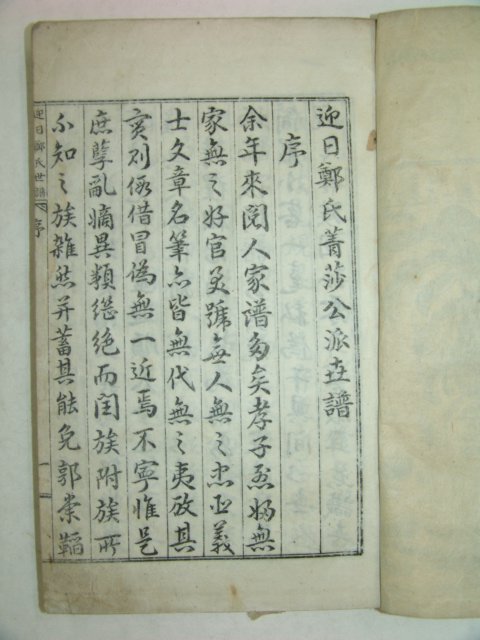 迎日鄭氏菁莎公派世譜
序
余年來閱人家譜多矣孝子烈婦無
家無之好官美號無人無之忠臣義
士文章名筆亦皆無代無之夷攷其
實則假借冒僞無一近焉不寧惟是
庶孼亂嫡異類繼絶而閏族附族所
不知之族雜然并蓄其能免郭崇韜
迎日鄭氏世譜 序 一